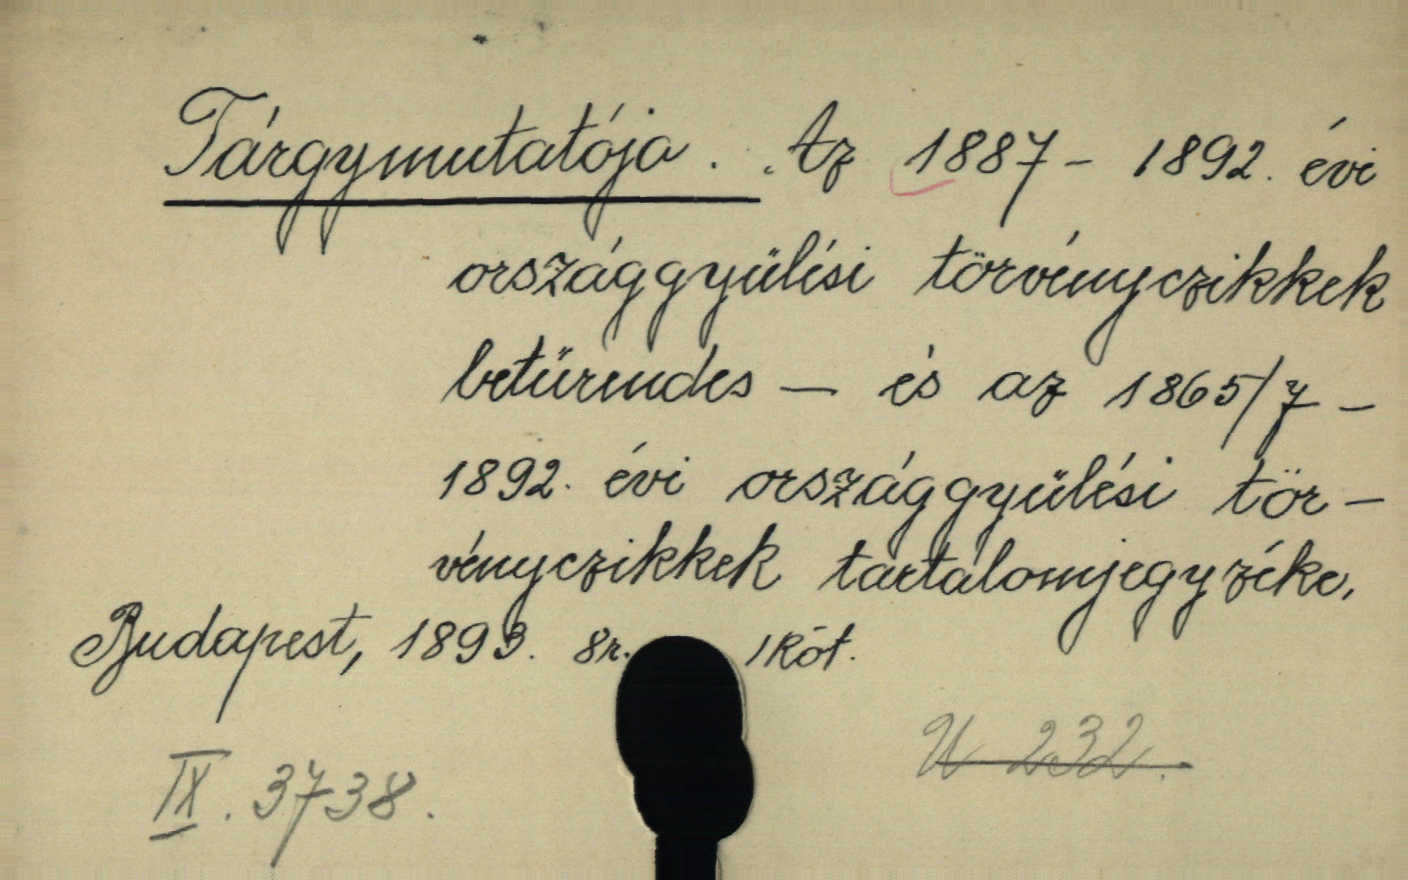 Tárgymutatója. Az 1887- 1892. évi
országgyülési törvényczikkek
betürendes — és az 1865/7 -
1892. évi országgyülési tör-
vényczikkek tartalomjegyzéke.
Budapest, 1893. 8r. 1 Köt.
U 232.
IX. 3738.